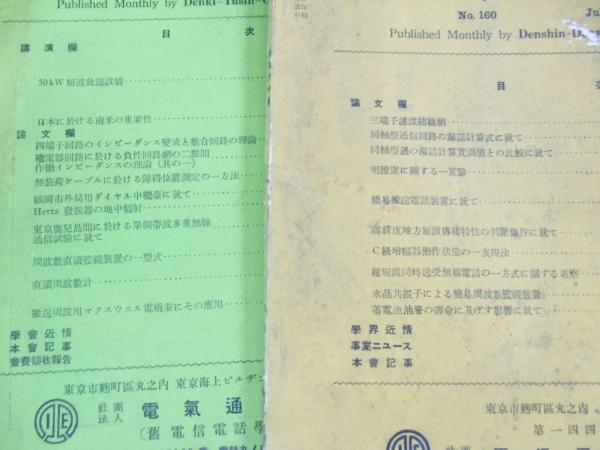 Published Monthly by Denki-Tusin-
目 次
講演欄
50kW 短波放送設備
日本に於ける南米の重要性
論文欄
四端子回路のインピーダンス變成と整合回路の理論
繼電器回路に於ける負性回路網の二點間
作働インピーダンスの理論（其の一）
無裝荷ケーブルに於ける障碍位置測定の一方法
福岡市外局用ダイヤル中繼臺に就て
Hertz 發振器の地中輻射
東京鹿兒島間に於ける單側帶波多重無線
通信試驗に就て
周波數直讀監視裝置の一型式
直讀周波數計
搬送周波用マクスウェル電橋並にその應用
學會近情
本會記事
會費領收報告
東京市麴町區丸之內 東京海上ビルヂン
社團
法人
電氣通
〔舊電信電話學
No. 160
Published Monthly by Denshin-
目
論文欄
三端子濾波結線網
同軸型通信回路の漏話計算式に就て
同軸型通の漏話計算實測値との比較に就て
明瞭度に關する一實驗
簡易搬送電話裝置に就て
高緯度地方短波傳播特性の判斷條件に就て
C級增幅器動作狀態の一表現法
超短波同時送受無線電話の一方式に關する考察
水晶共振子による簡易周波數監視裝置
蓄電池油層の壽命に及ぼす影響に就て
學界近情
事業ニュース
本會記事
東京市麴町區丸之內
第一四四
社團